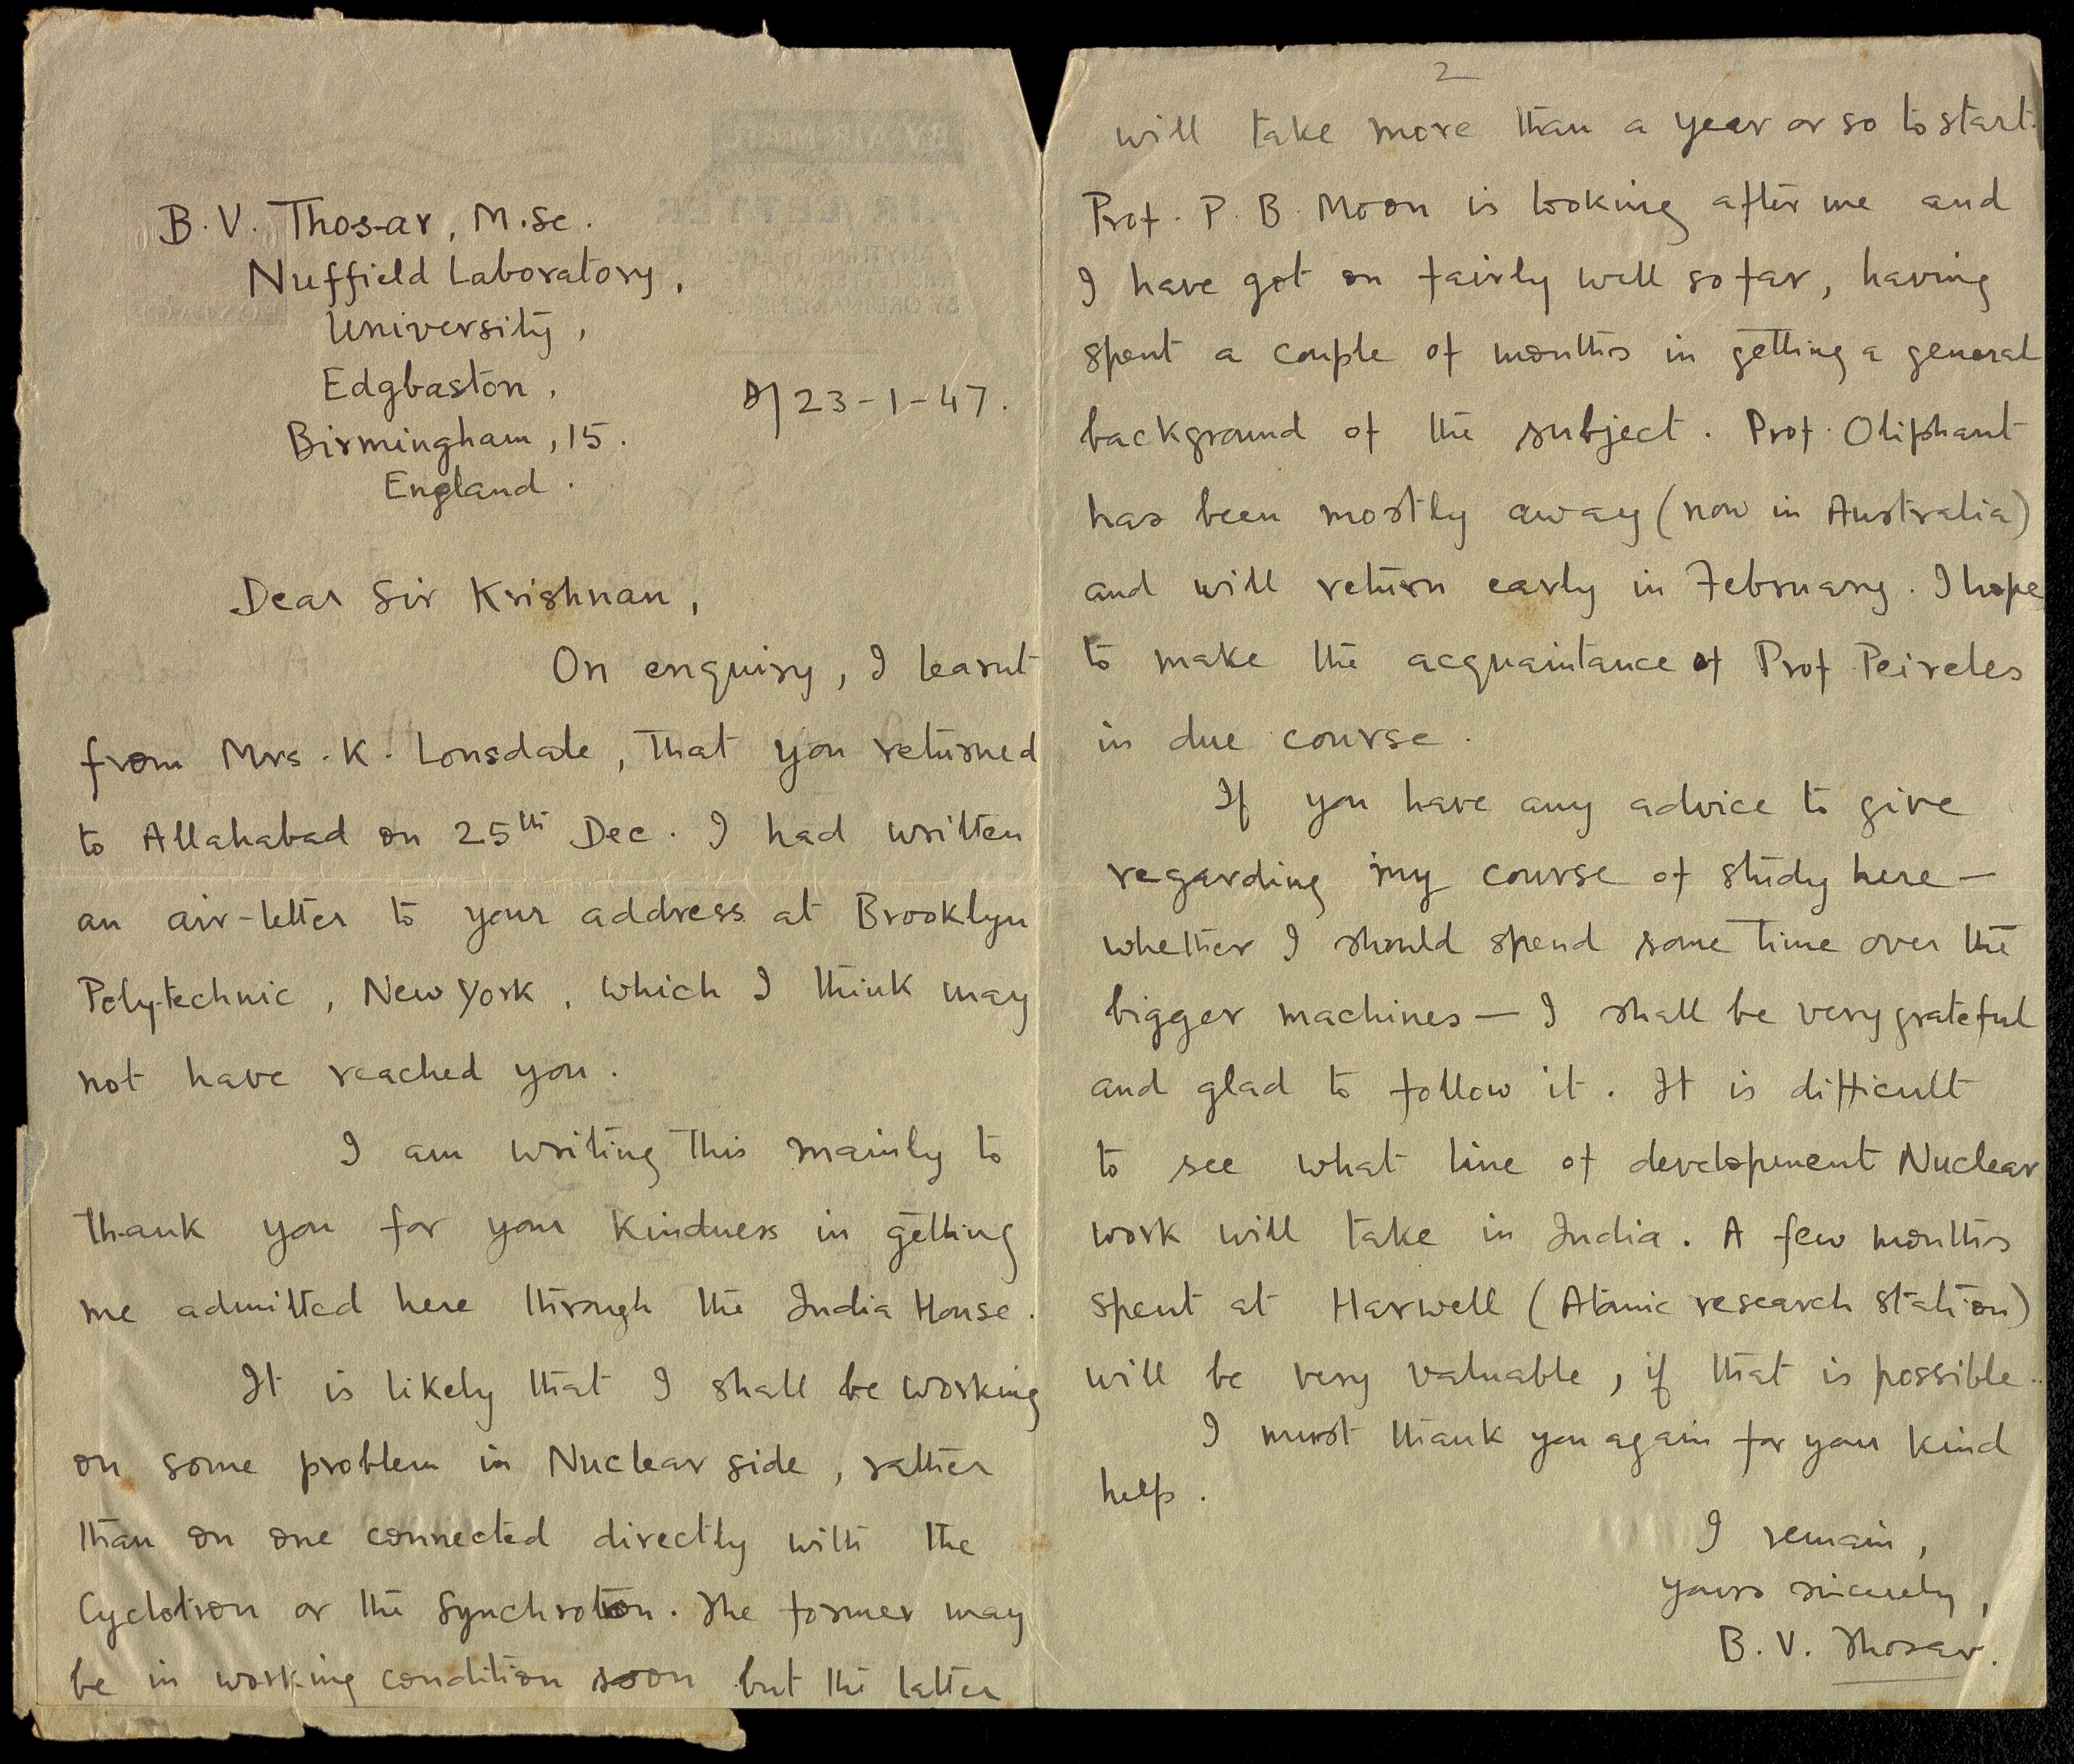 B. V. Thosar, M.Sc.
Nuffield Laboratory,
University,
Edgbaston,
Birmingham, 15.
England.
D/ 23-1-47.
Dear Sir Krishnan,
On enquiry, I learnt
from Mrs. K. Lonsdale, that you returned
to Allahabad on 25th Dec. I had written
an air-letter to your address at Brooklyn
Polytechnic, New York, which I think may
not have reached you.
I am writing this mainly to
thank you for your kindness in getting
me admitted here through the India House.
It is likely that I shall be working
on some problem in Nuclear side, rather
than on one connected directly with the
Cyclotron or the Synchrotron. The former may
be in working condition soon but the latter
2
will take more than a year or so to start.
Prof. P. B. Moon is looking after me and
I have got on fairly well so far, having
spent a couple of months in getting a general
background of the subject. Prof. Oliphant
has been mostly away (now in Australia)
and will return early in February. I hope
to make the acquaintance of Prof Peireles
in due course.
If you have any advice to give
regarding my course of study here —
whether I should spend some time over the
bigger machines — I shall be very grateful
and glad to follow it. It is difficult
to see what line of development Nuclear
work will take in India. A few months
spent at Harwell (Atomic research station)
will be very valuable, if that is possible.
I must thank you again for your kind
help.
I remain,
yours sincerely,
B. V. Thosar.